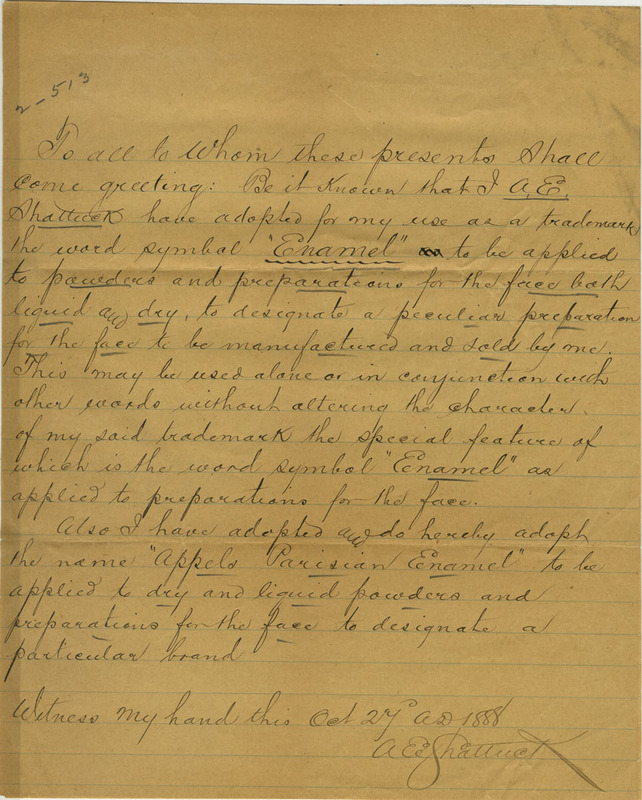 2-513
To all to Whom these presents Shall
come greeting: Be it Known that I A.E.
Shattuck have adopted for my use as a trademark
the word symbol "Enamel" to be applied
to powders and preparations for the face both
liquid and dry, to designate a peculiar preparation
for the face to be manufactured and sold by me.
This may be used alone or in conjunction with
other words without altering the character
of my said trademark the special feature of
which is the word symbol "Enamel" as
applied to preparations for the face.
Also I have adopted and do hereby adopt
the name "Appels Parisian Enamel" to be
applied to dry and liquid powders and
preparations for the face to designate a
particular brand
Witness My hand this Oct 27 AD 1888
A E Shattuck